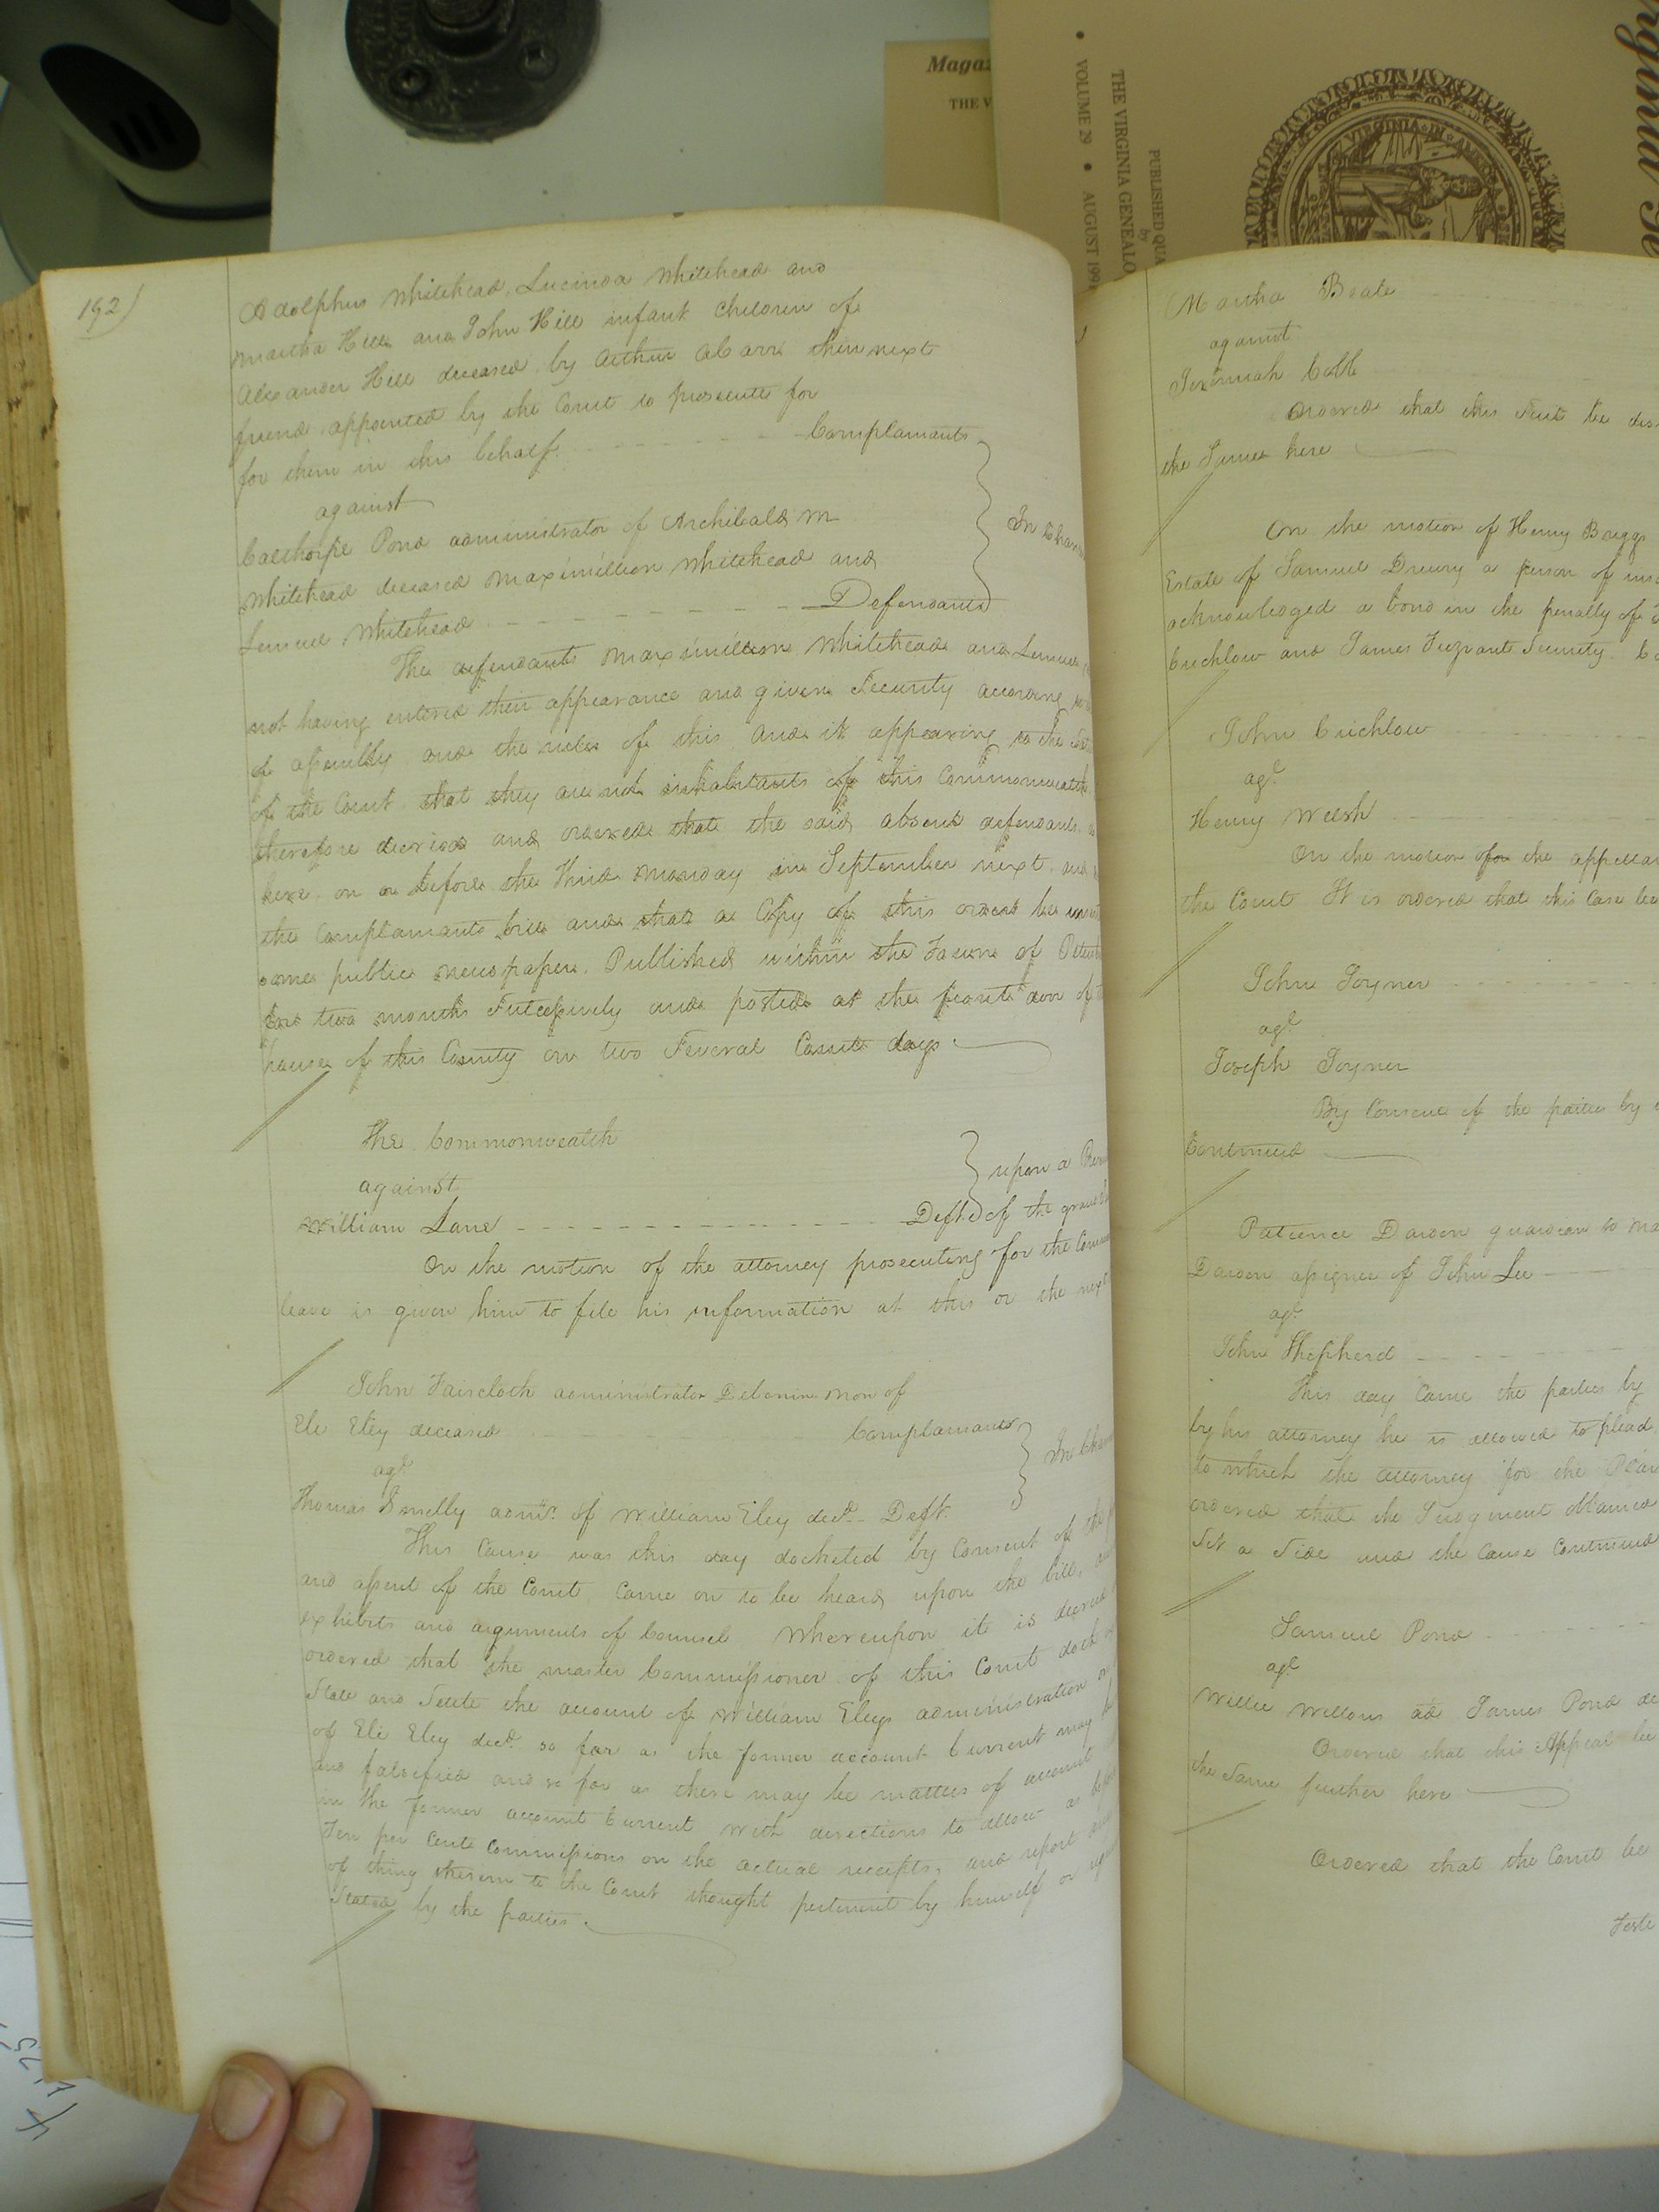 Magaz
THE V
• VOLUME 29 • AUGUST 199
THE VIRGINIA GENEALO
PUBLISHED QUA
by
192)
Adolphus Whitehead, Lucinda Whitehead and
Martha Hill and John Hill infant Children of
Alexander Hill deceased by Arthur their next
friend appointed by the Court to prosecute for
for them in this behalf Complainants
against
Calthorpe Pond administrator of Archibald M
Whitehead deceased Maximillion Whitehead and
Lemuel Whitehead Defendants
In Chan
The defendants Maximillion Whitehead and Lemuel
not having entered their appearance and given Security according
of assembly and the rules of this and it appearing to the
of the Court that they are not inhabitants of this Commonwealth
therefore decreed and ordered that the said absent defendants
here on or before the Third Monday in September next
the Complainants bill and that a Copy of this order be
some public newspaper Published within the Town of
for two months Successively and posted at the front door of
house of this County on two Several Court days
The Commonwealth
against
upon a
William Lane Deft of the grand
On the motion of the attorney prosecuting for the
leave is given him to file his information at this or the next
John Faircloth administrator Debonis non of
Eli Eley deceased Complainant
agt
In Chan
Thomas Smelly admr. of William Eley decd. Deft
This Cause was this day docketed by Consent of the
and assent of the Court Came on to be heard upon the bill,
exhibits and arguments of Counsel Whereupon it is decreed
ordered that the master Commissioner of this Court doth
State and Settle the account of William Eleys administration
of Eli Eley decd. so far as the former account Current may
and falsified and so far as there may be matters of account
in the former account Current with directions to allow as
Ten per Cent Commissions on the actual receipts, and report
of thing therein to the Court thought pertinent by himself or
Stated by the parties
Martha Beale
against
Jeremiah Cobb
Ordered that this Suit be dis
the Same here
On the motion of Henry Briggs
Estate of Samuel Drewry a person of
acknowledged a bond in the penalty of
Crichlow and James Security
John Crichlow
agt
Henry Welsh
On the motion of the appellan
the Court It is ordered that this Case be
John Joyner
agt
Joseph Joyner
By Consent of the parties by
Continued
Patience Darden guardian to Ma
Darden assignee of John Lee
agt
John Shepherd
This day Came the parties by
by his attorney he is allowed to plead
to which the attorney for the Plain
ordered that the Judgment Obtained
Set a Side and the Cause Continued
Samuel Pond
agt
Willie ad James Pond de
Ordered that this Appeal be
the Same further here
Ordered that the Court be
Teste